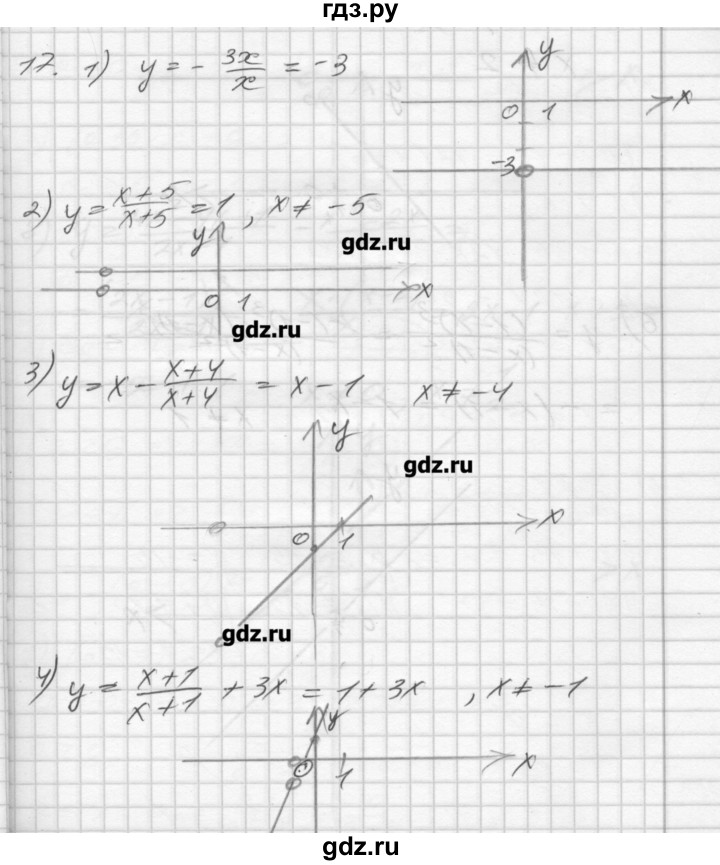 гдз.ру
17. 1) y = - 3x/x = -3
y
0 1 x
-3
2) y = x+5/x+5 = 1 , x ≠ -5
gdz.ru
y
0 1 x
gdz.ru
3) y = x - x+4/x+4 = x - 1 x ≠ -4
y
gdz.ru
0 1 x
gdz.ru
4) y = x+1/x+1 + 3x = 1 + 3x , x ≠ -1
y
0 1 x
gdz.ru